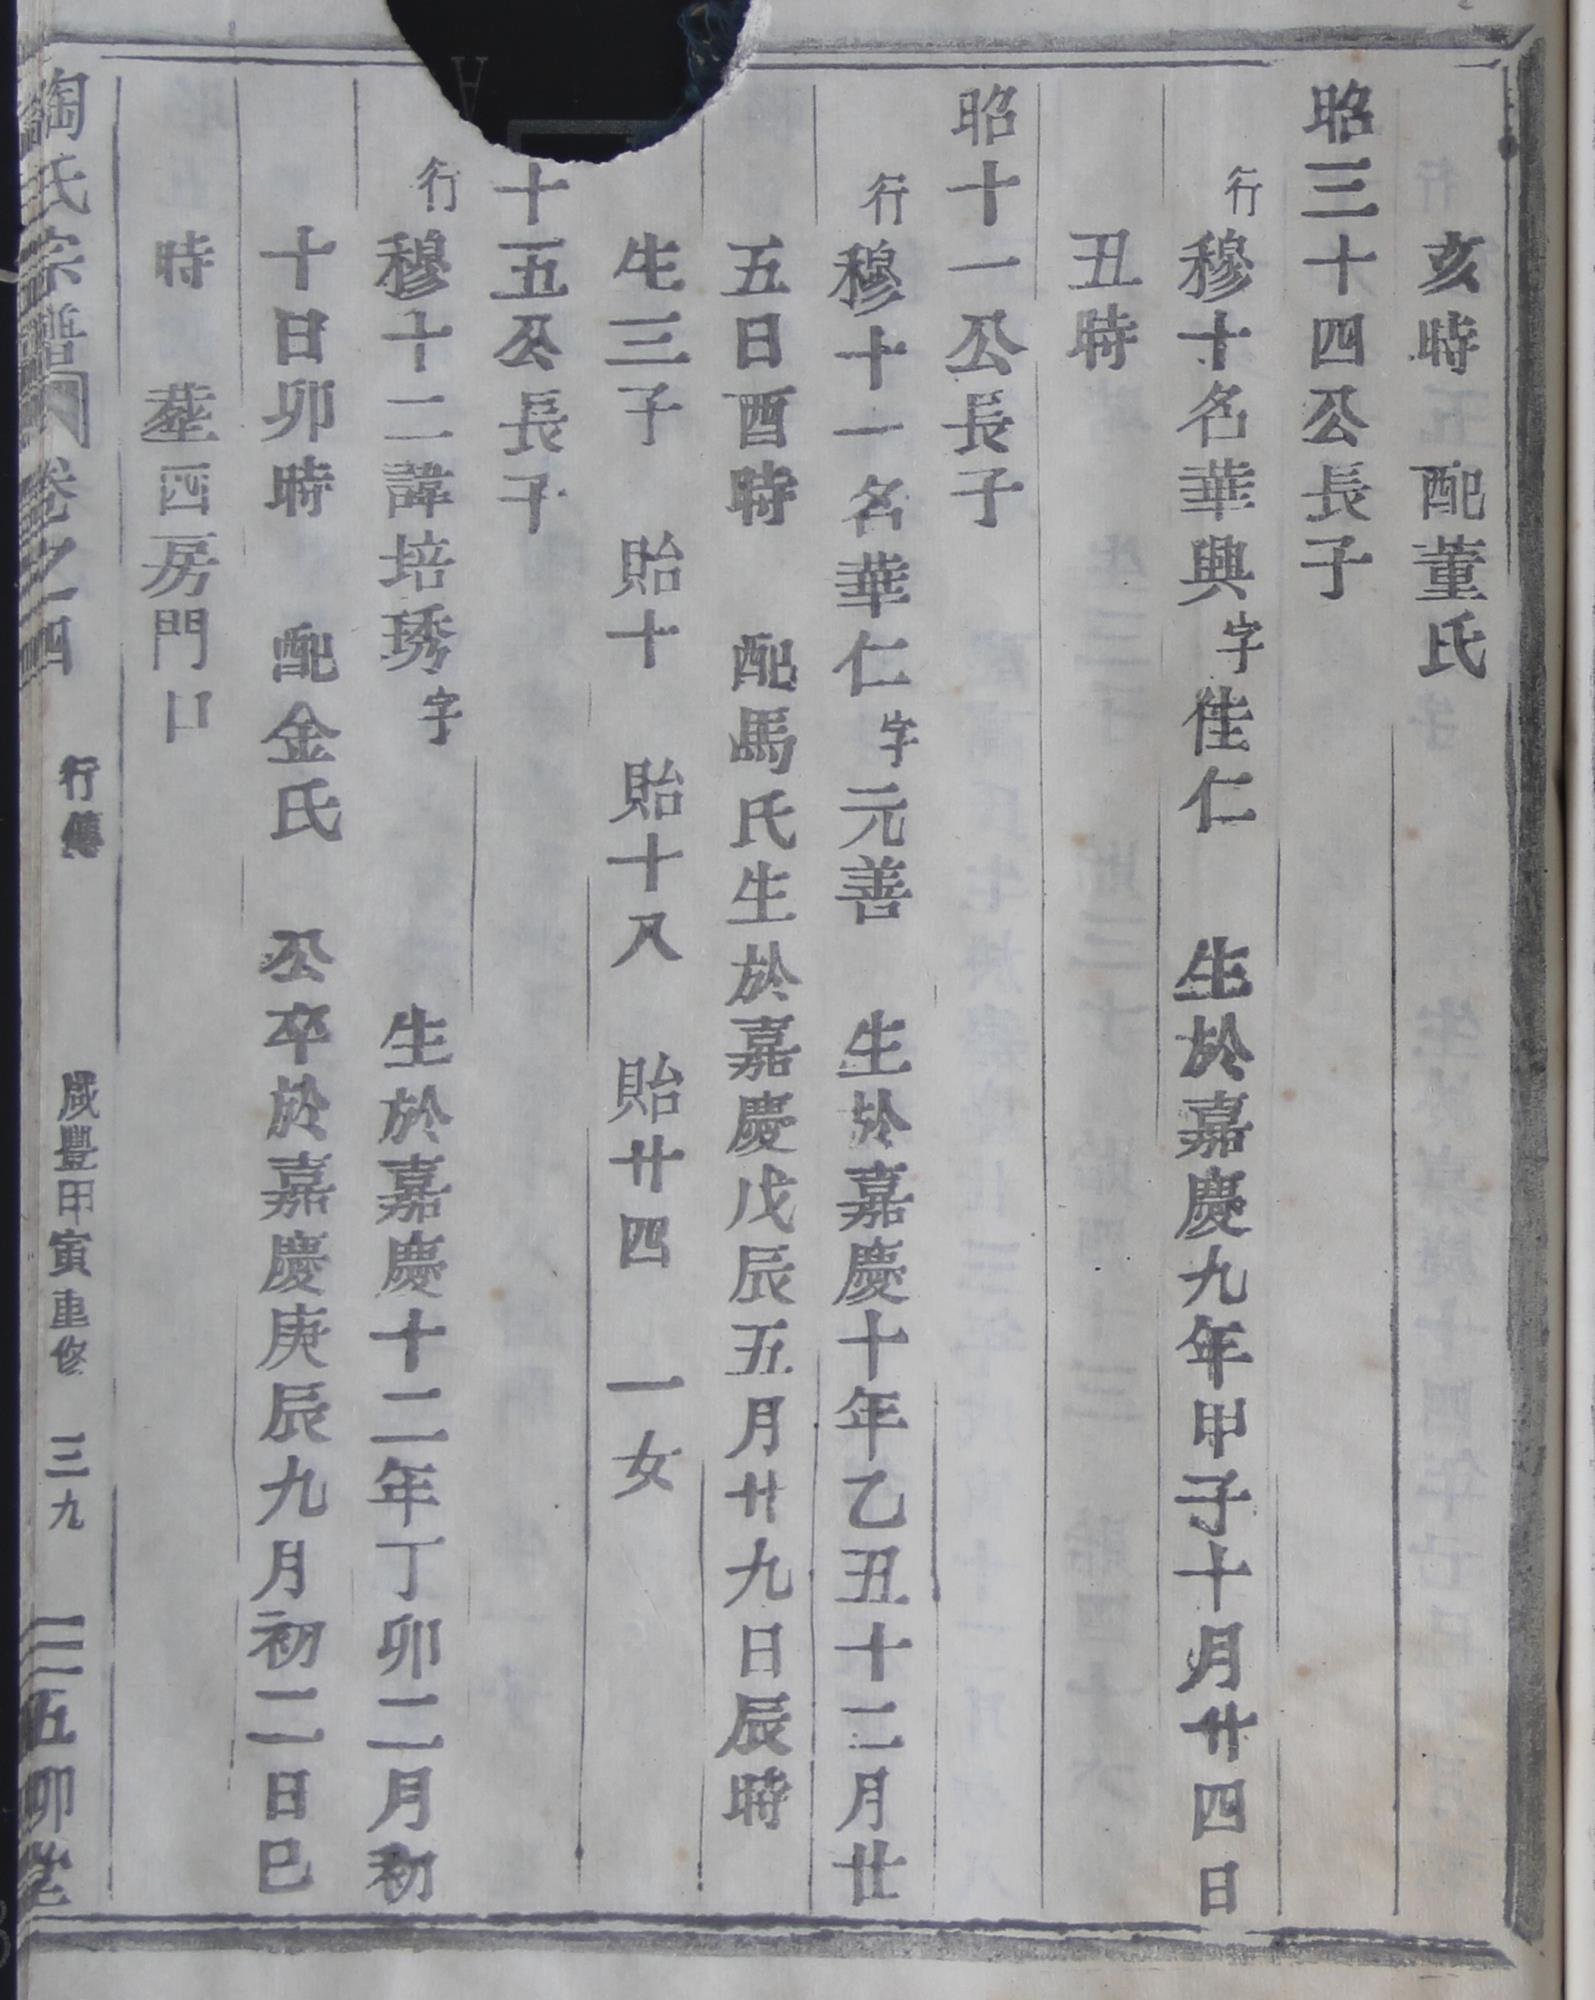 亥時　配董氏
昭三十四公長子
行穆十名華興字佳仁　生於嘉慶九年甲子十月廿四日
丑時
昭十一公長子
行穆十一名華仁字元善　生於嘉慶十年乙丑十二月廿
五日酉時　配馬氏生於嘉慶戊辰五月廿九日辰時
生三子　貽十　貽十八　貽廿四　一女
十五公長子
行穆十二諱培琇字　生於嘉慶十二年丁卯二月初
十日卯時　配金氏　公卒於嘉慶庚辰九月初二日巳
時　塟西房門口
陶氏宗譜　卷之四　行傳　咸豐甲寅重修　三九　五卯堂